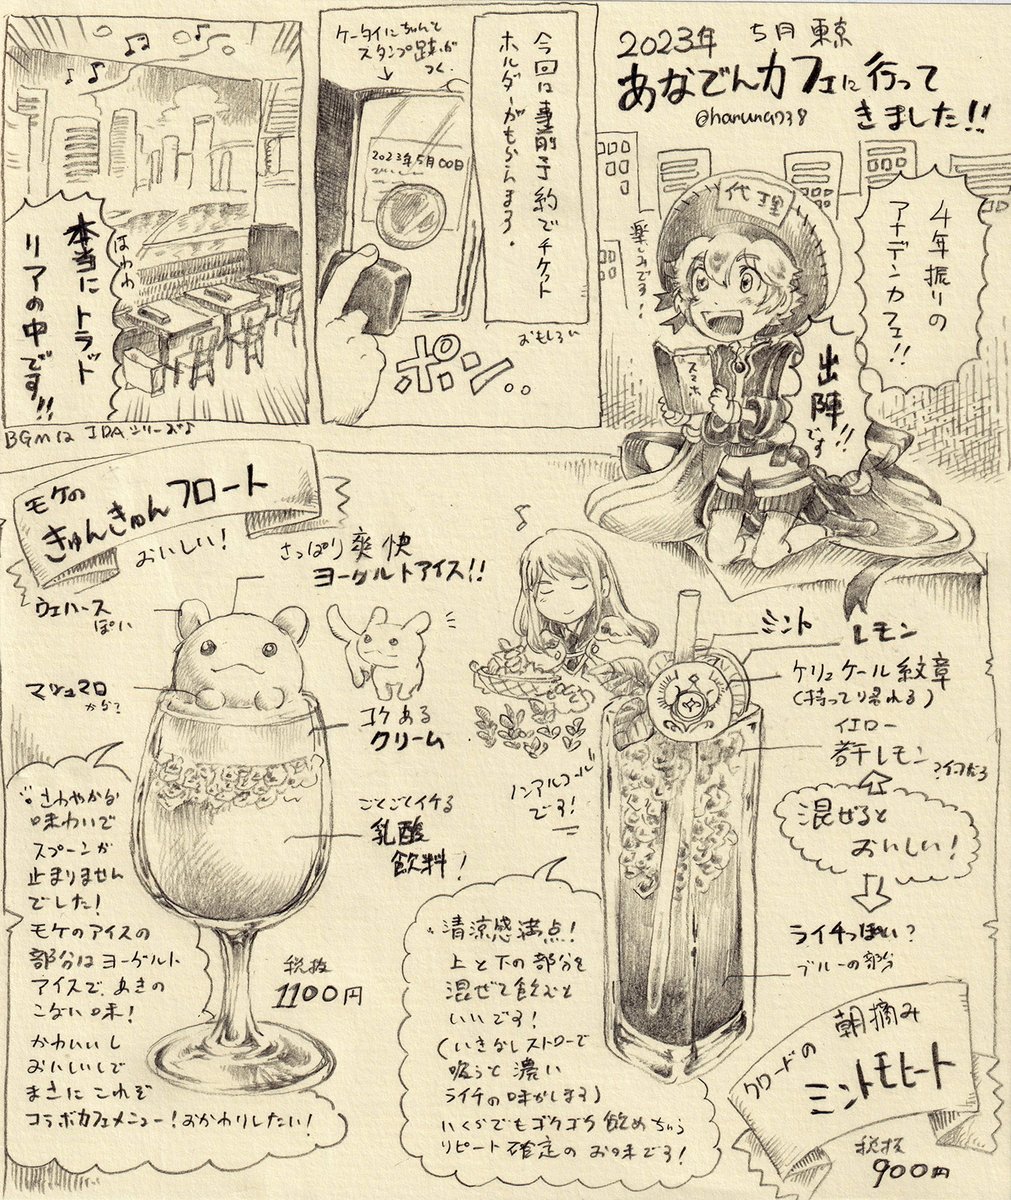 2023年 5月 東京
あなでんカフェに行って
きました!!
@haruna738
4年振りの
アナデンカフェ!!
代理
楽しみです!
スマホ
出陣
です!!
今回は事前予約でチケット
ホルダーがもらえます。
ケータイにちゃんと
スタンプ跡が
つく。
2023年5月00日
ポン..
おもしろい
ほわわ
本当にトラット
リアの中です!!
BGMは IDAシリーズ♪
モケの
きゅんきゅんフロート
おいしい!
さっぱり爽快
ヨーグルトアイス!!
ウエハース
ぽい
マシュマロ
かな?
コケある
クリーム
ごくごくイケる
乳酸
飲料!
さわやかな
味わいで
スプーンが
止まりません
でした!
モケのアイスの
部分はヨーグルト
アイスで、あきの
こない味!
かわいいし
おいしいしで
まさにこれぞ
コラボカフェメニュー!おかわりしたい!
税抜
1100円
ミント
レモン
ケリュケール紋章
(持って帰れる)
イエロー
若干レモン
混ぜると
おいしい!
ライチっぽい?
ブルーの部分
ノンアルコール
です!
清涼感満点!
上と下の部分を
混ぜて飲むと
いいです!
(いきなしストローで
吸うと濃い
ライチの味がします)
いくらでもゴクゴク飲めちゃう
リピート確定のお味です!
クロードの
朝摘み
ミントモヒート
税抜
900円